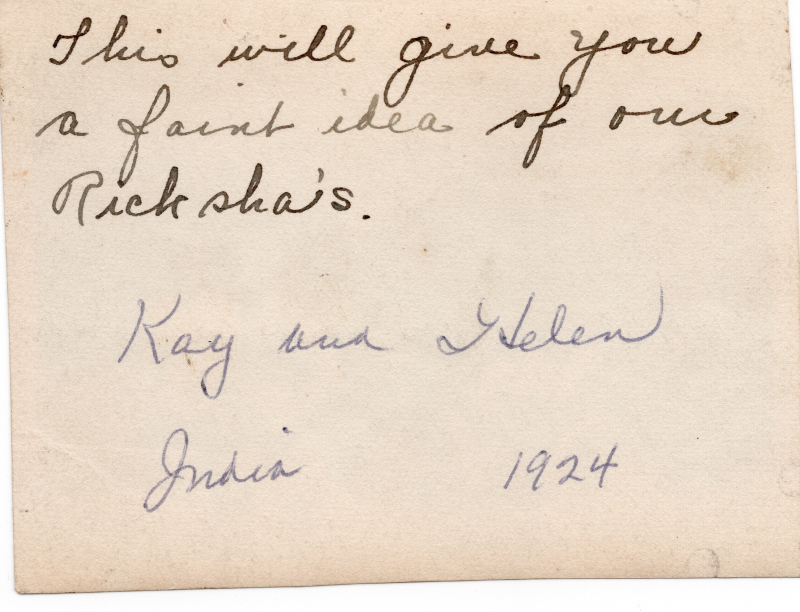 This will give you
a faint idea of our
Ricksha's.
Kay and Helen
India 1924